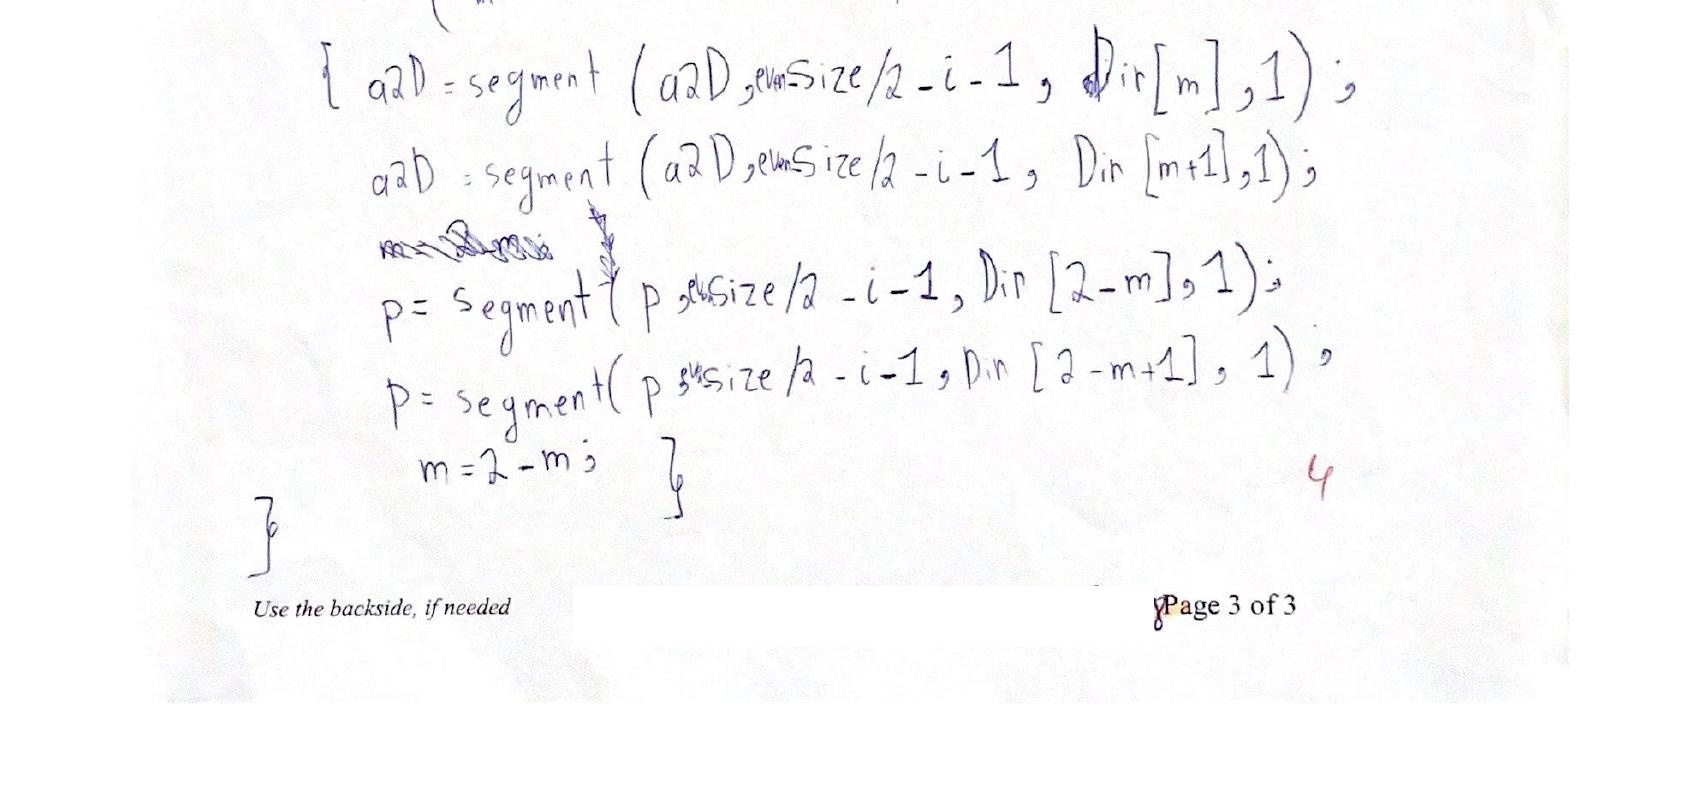 { a2D = segment (a2D, evenSize/2-i-1, Dir[m],1);
a2D = segment (a2D, evenSize/2-i-1, Dir [m+1],1);
p = segment ( p, evenSize/2-i-1, Dir [2-m], 1);
p = segment( p, evenSize/2-i-1, Dir [2-m+1], 1);
m = 2-m; }
4
}
Use the backside, if needed Page 3 of 3